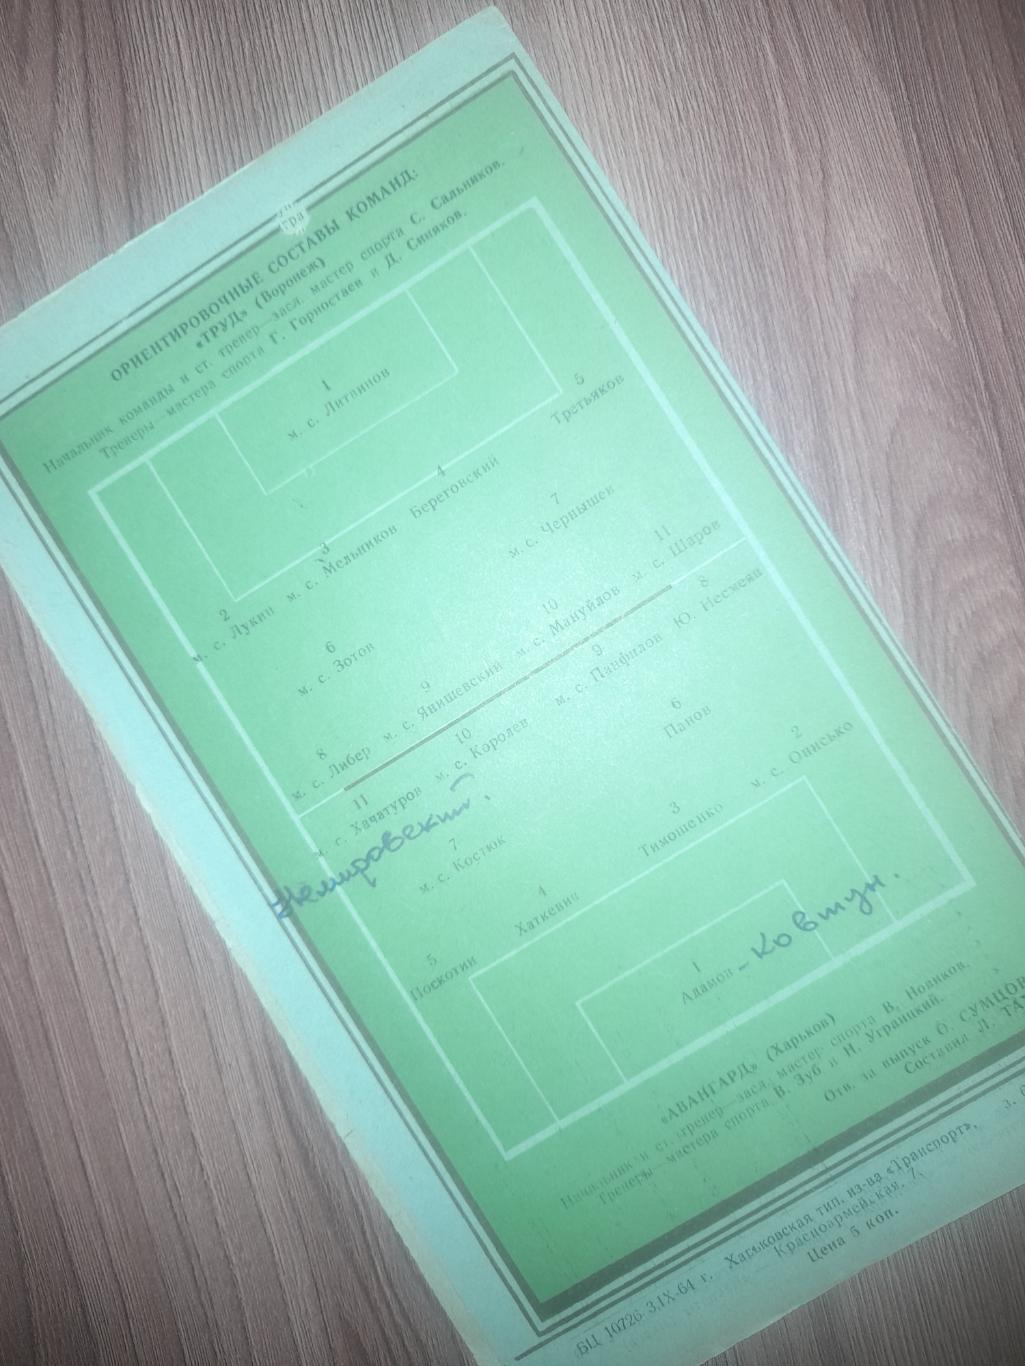 ОРИЕНТИРОВОЧНЫЕ СОСТАВЫ КОМАНД:
«ТРУД» (Воронеж)
Начальник команды и ст. тренер—засл. мастер спорта С. Сальников.
Тренеры—мастера спорта Г. Горностаев и Д. Синяков.
1
м. с. Литвинов
2 3 4 5
м. с. Лукин м. с. Мельников Береговский Третьяков
6 7
м. с. Зотов м. с. Чернышев
8 9 10 11
м. с. Либер м. с. Янишевский м. с. Мануйлов м. с. Шаров
11 10 9 8
м. с. Хачатуров м. с. Королев м. с. Панфилов Ю. Несмеян
Немировский.
7 6
м. с. Костюк Панов
5 4 3 2
Поскотин Хаткевич Тимошенко м. с. Онисько
1
Адамов – Ковтун.
«АВАНГАРД» (Харьков)
Начальник и ст. тренер—засл. мастер спорта В. Новиков.
Тренеры—мастера спорта В. Зуб и Н. Уграицкий.
Отв. за выпуск Б. СУМЦОВ
Составил Л.
БЦ 10726 3.IX-64 г. Харьковская тип. из-ва «Транспорт»,
Красноармейская, 7.
Цена 5 коп.